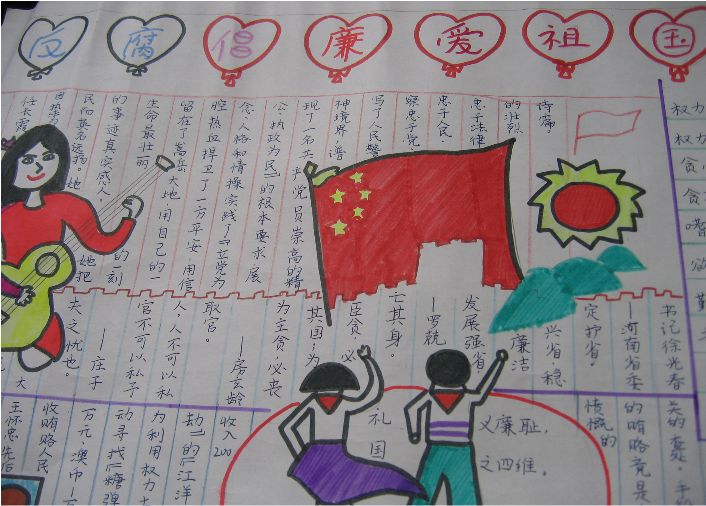 反腐倡廉爱祖国
诗篇。
的壮烈
忠于法律
察忠于党、
写了人民警
神境界,谱
现了一名共产党员崇高的精
公,执政为民』的根本要求,展
念、人格和情操实践了『立党为
腔热血捍卫了一方平安,用信
留在了嵩岳大地,用自己的一
生命最壮丽的一刻
的事迹真实感人
民而英名远扬。她把
任长霞
权力
权力
贪
贪
嗜
欲
书记徐光春
—河南省委
定护省。
兴省、稳
廉洁
发展强省,
亡其身。
臣贪,必
其国;为
为主贪,必丧
—房玄龄
取官。
人,人不可以私
官不可以私予
—庄子
夫之忧也。
大
的贿赂竟是
愤慨的
义廉耻,
之四维。
礼
国
收入200
劫』的『江洋
为利用权力
动寻找『糖弹
万元,澳币一万
收贿赂人民
王怀忠先后